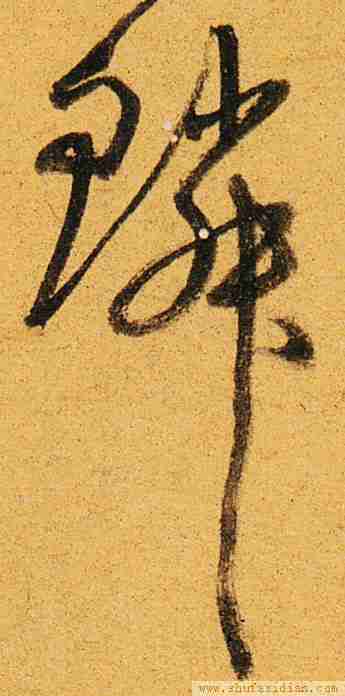 隣
www.shufazidian.com